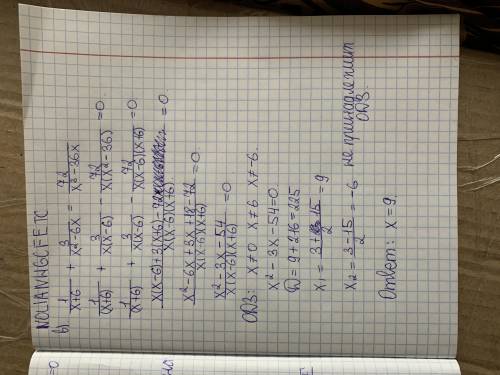 NOLIAIVHGCFETC
в) 1/(x+6) + 3/(x²-6x) = 72/(x³-36x)
1/(x+6) + 3/(x(x-6)) - 72/(x(x²-36)) = 0.
1/(x+6) + 3/(x(x-6)) - 72/(x(x-6)(x+6)) = 0.
(x(x-6)+3(x+6)-72)/(x(x-6)(x+6)) = 0
(x²-6x+3x+18-72)/(x(x-6)(x+6)) = 0.
(x²-3x-54)/(x(x-6)(x+6)) = 0
ОДЗ: x≠0 x≠6 x≠-6.
x²-3x-54=0.
D=9+216=225
x₁ = (3+15)/2 = 9
x₂ = (3-15)/2 = -6 не принадлежит
ОДЗ.
Ответ: x=9.
=0